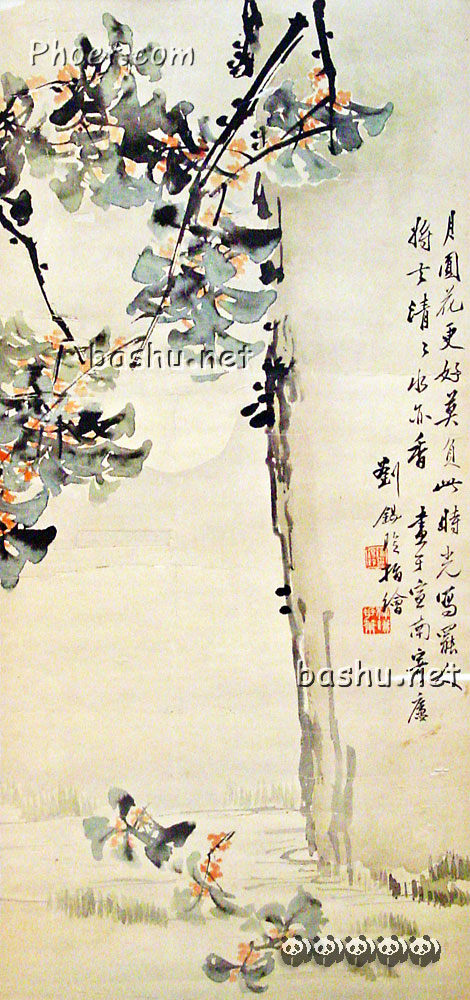 Phoer.com
bashu.net
bashu.net
月圓花更好莫負此時光寫罷人
將去清〻水亦香 畫于宣南寄廬
劉錫玲指繪